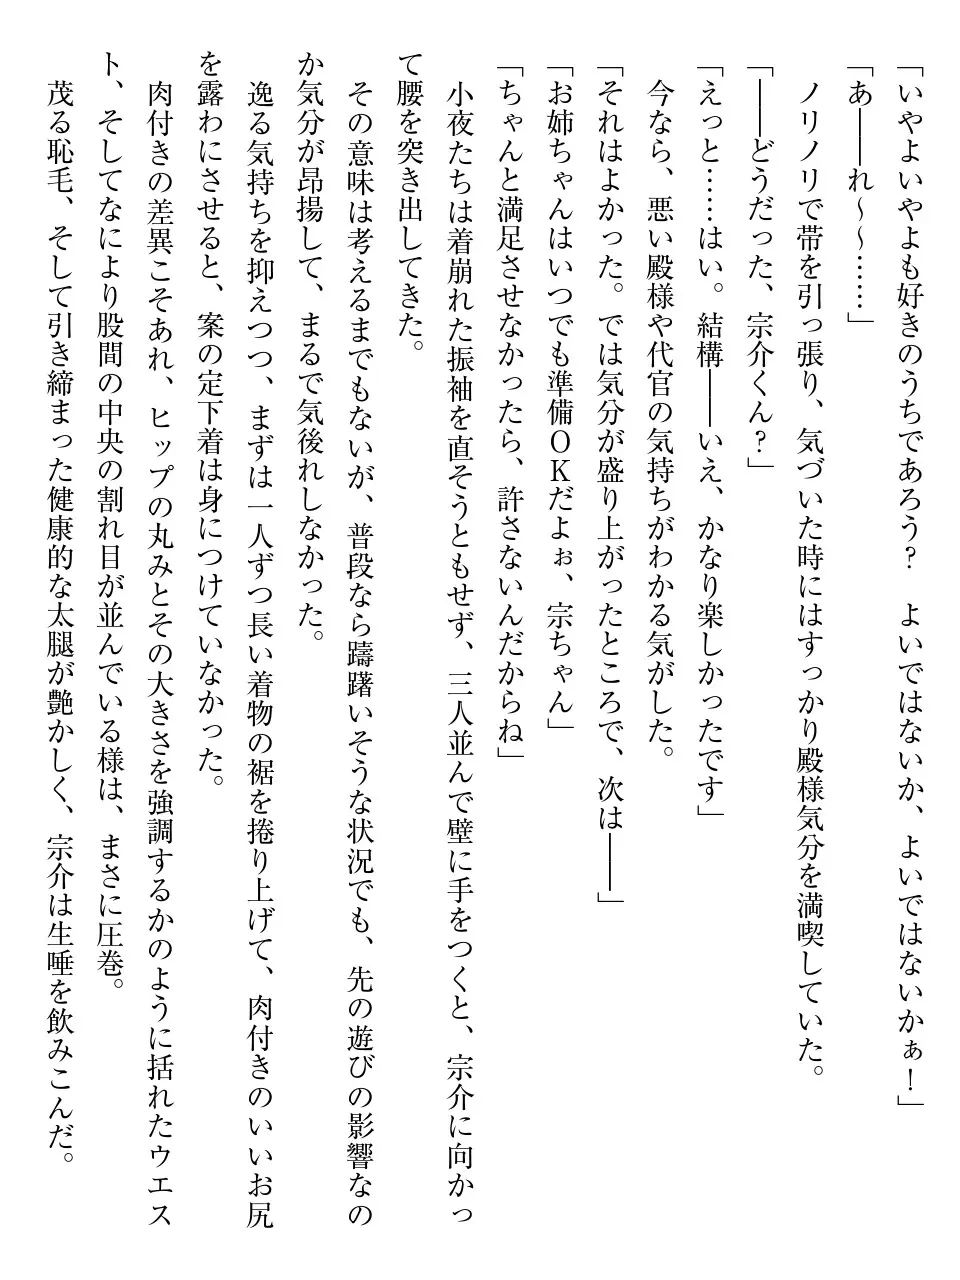 「いやよいやよも好きのうちであろう？　よいではないか、よいではないかぁ！」
「あ――れ～～……」
　ノリノリで帯を引っ張り、気づいた時にはすっかり殿様気分を満喫していた。
「――どうだった、宗介くん？」
「えっと……はい。結構――いえ、かなり楽しかったです」
　今なら、悪い殿様や代官の気持ちがわかる気がした。
「それはよかった。では気分が盛り上がったところで、次は――」
「お姉ちゃんはいつでも準備ＯＫだよぉ、宗ちゃん」
「ちゃんと満足させなかったら、許さないんだからね」
　小夜たちは着崩れた振袖を直そうともせず、三人並んで壁に手をつくと、宗介に向かっ
て腰を突き出してきた。
　その意味は考えるまでもないが、普段なら躊躇いそうな状況でも、先の遊びの影響なの
か気分が昂揚して、まるで気後れしなかった。
　逸る気持ちを抑えつつ、まずは一人ずつ長い着物の裾を捲り上げて、肉付きのいいお尻
を露わにさせると、案の定下着は身につけていなかった。
　肉付きの差異こそあれ、ヒップの丸みとその大きさを強調するかのように括れたウエス
ト、そしてなにより股間の中央の割れ目が並んでいる様は、まさに圧巻。
　茂る恥毛、そして引き締まった健康的な太腿が艶かしく、宗介は生唾を飲みこんだ。